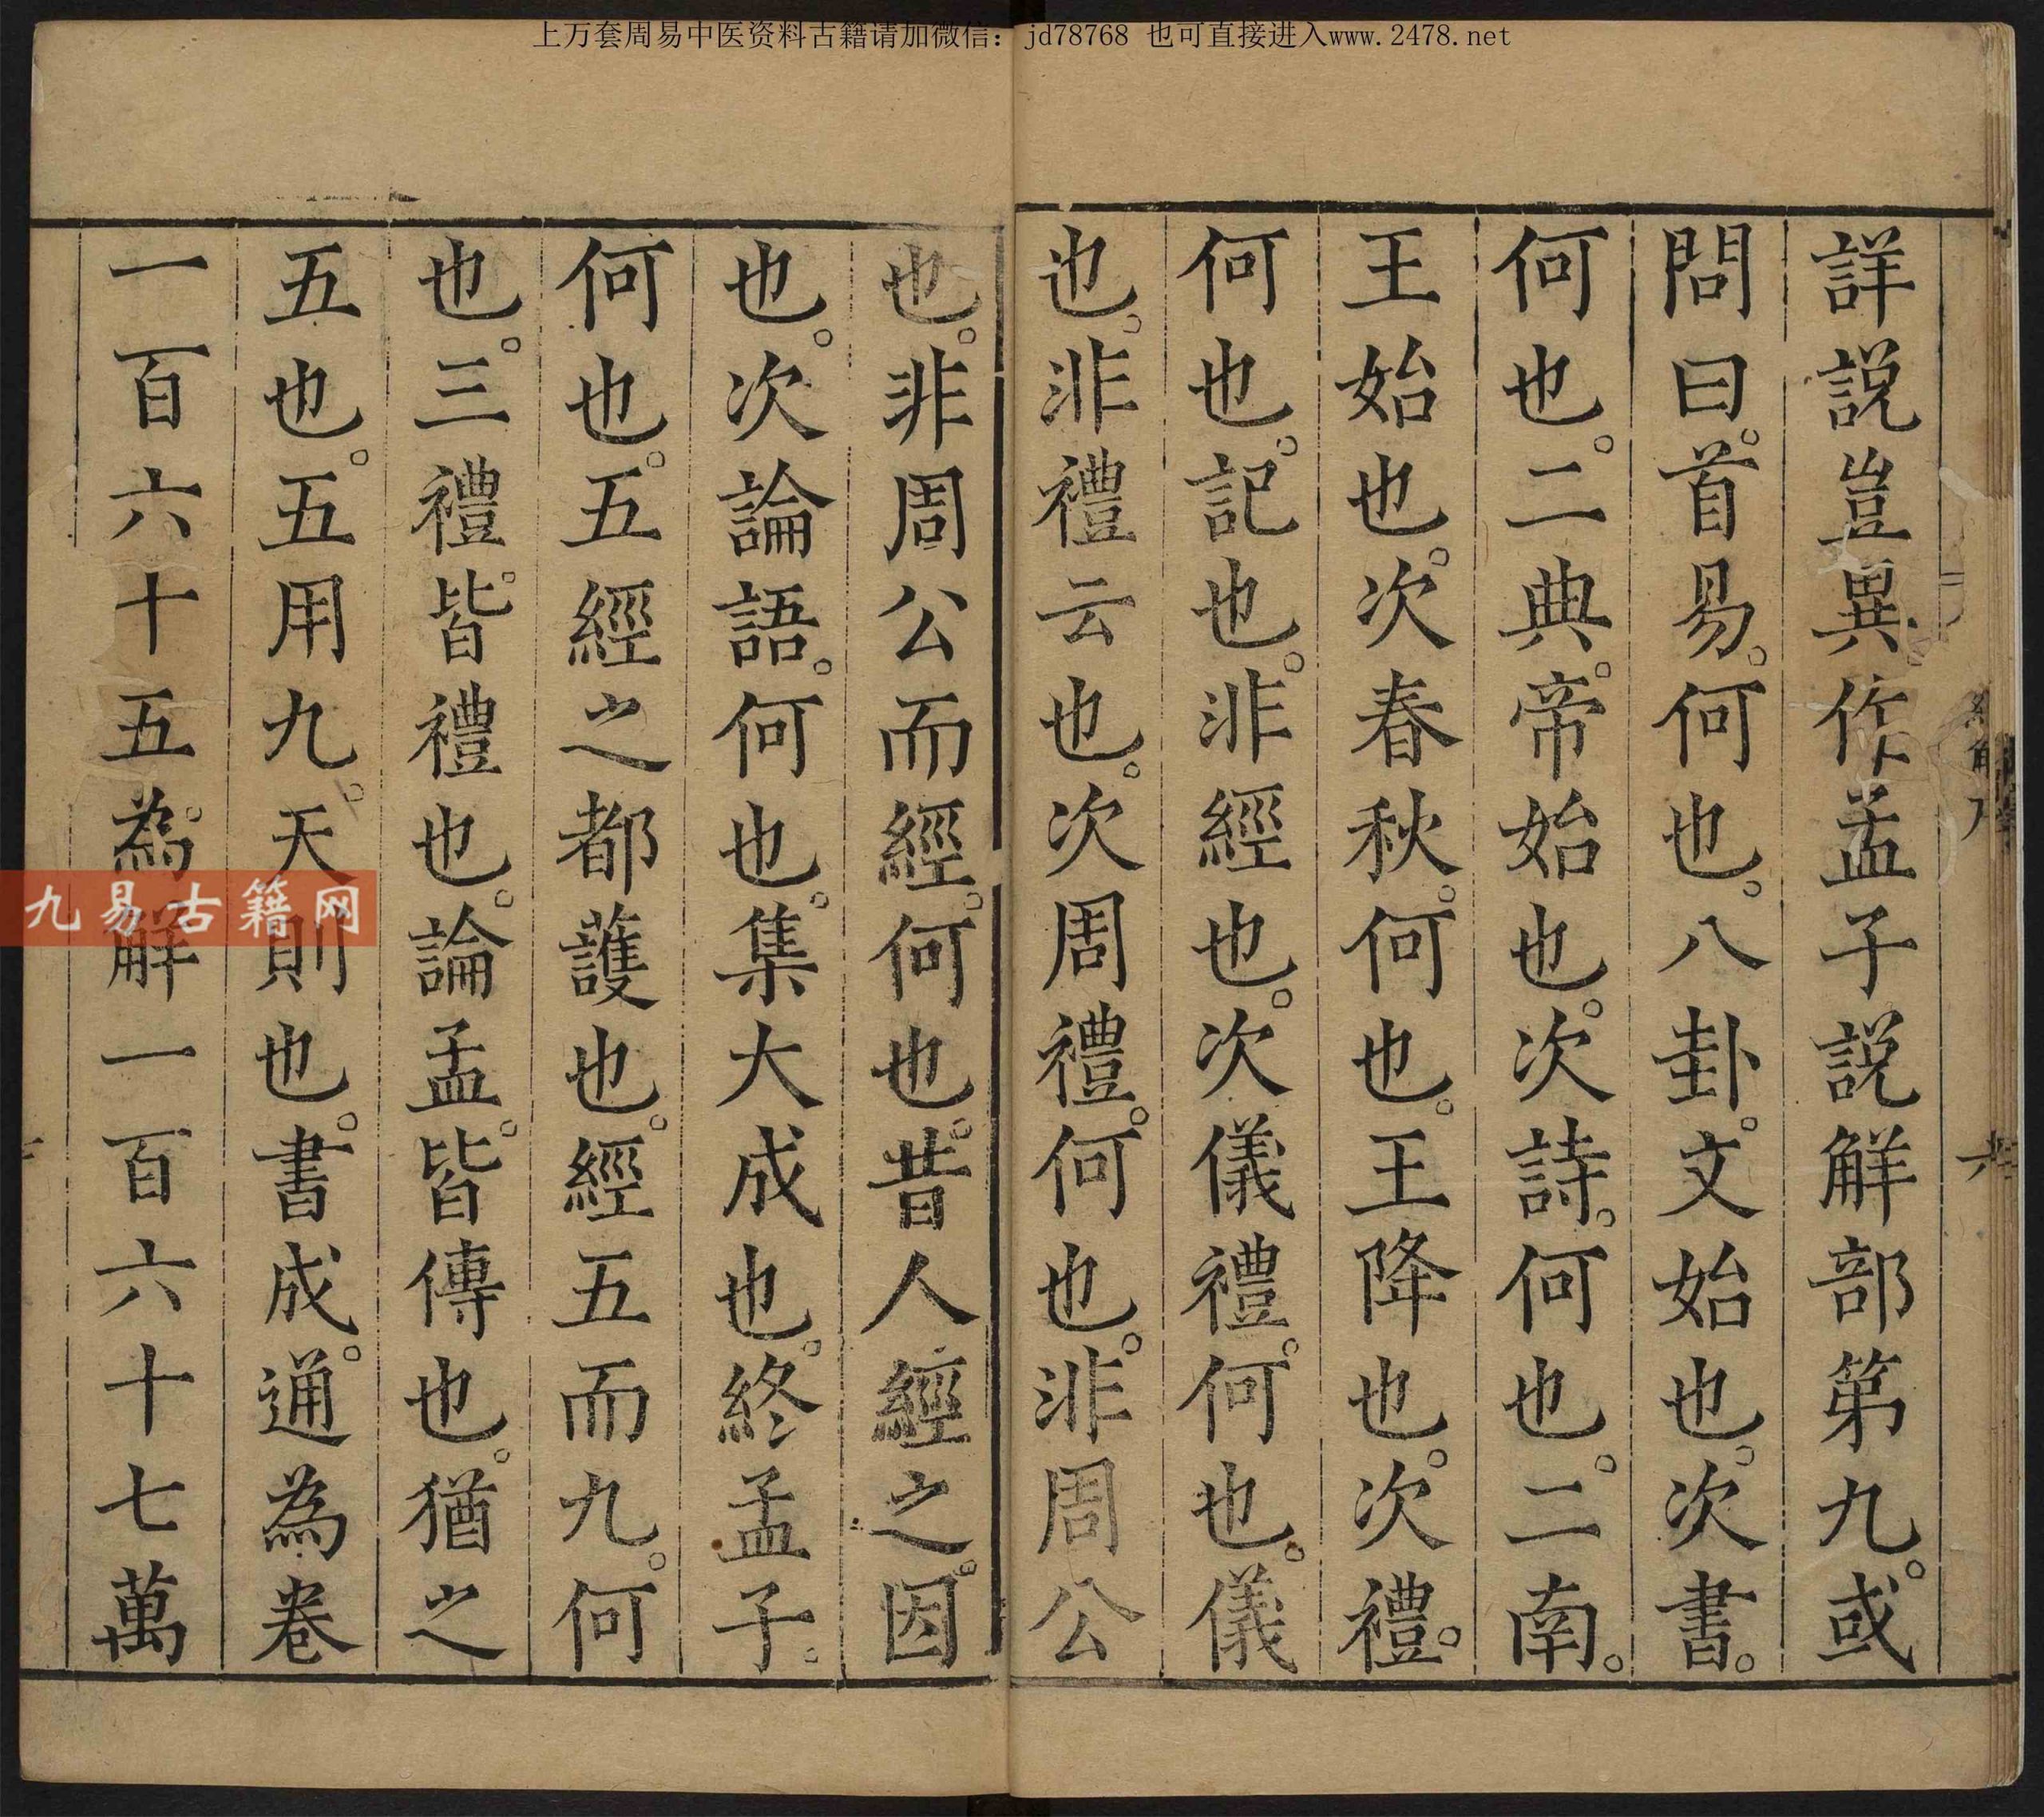 上万套周易中医资料古籍请加微信：jd78768 也可直接进入www.2478.net
詳説豈異作孟子説解部第九。或
問曰。首易。何也。八卦。文始也。次書。
何也。二典。帝始也。次詩。何也。二南。
王始也。次春秋。何也。王降也。次禮。
何也。記也。非經也。次儀禮。何也。儀
也。非禮云也。次周禮。何也。非周公
也。非周公而經。何也。昔人經之。因
也。次論語。何也。集大成也。終孟子。
何也。五經之都護也。經五而九。何
也。三禮。皆禮也。論孟。皆傳也。猶之
五也。五用九。天則也。書成。通為卷
一百六十五。為解一百六十七萬
九易古籍网